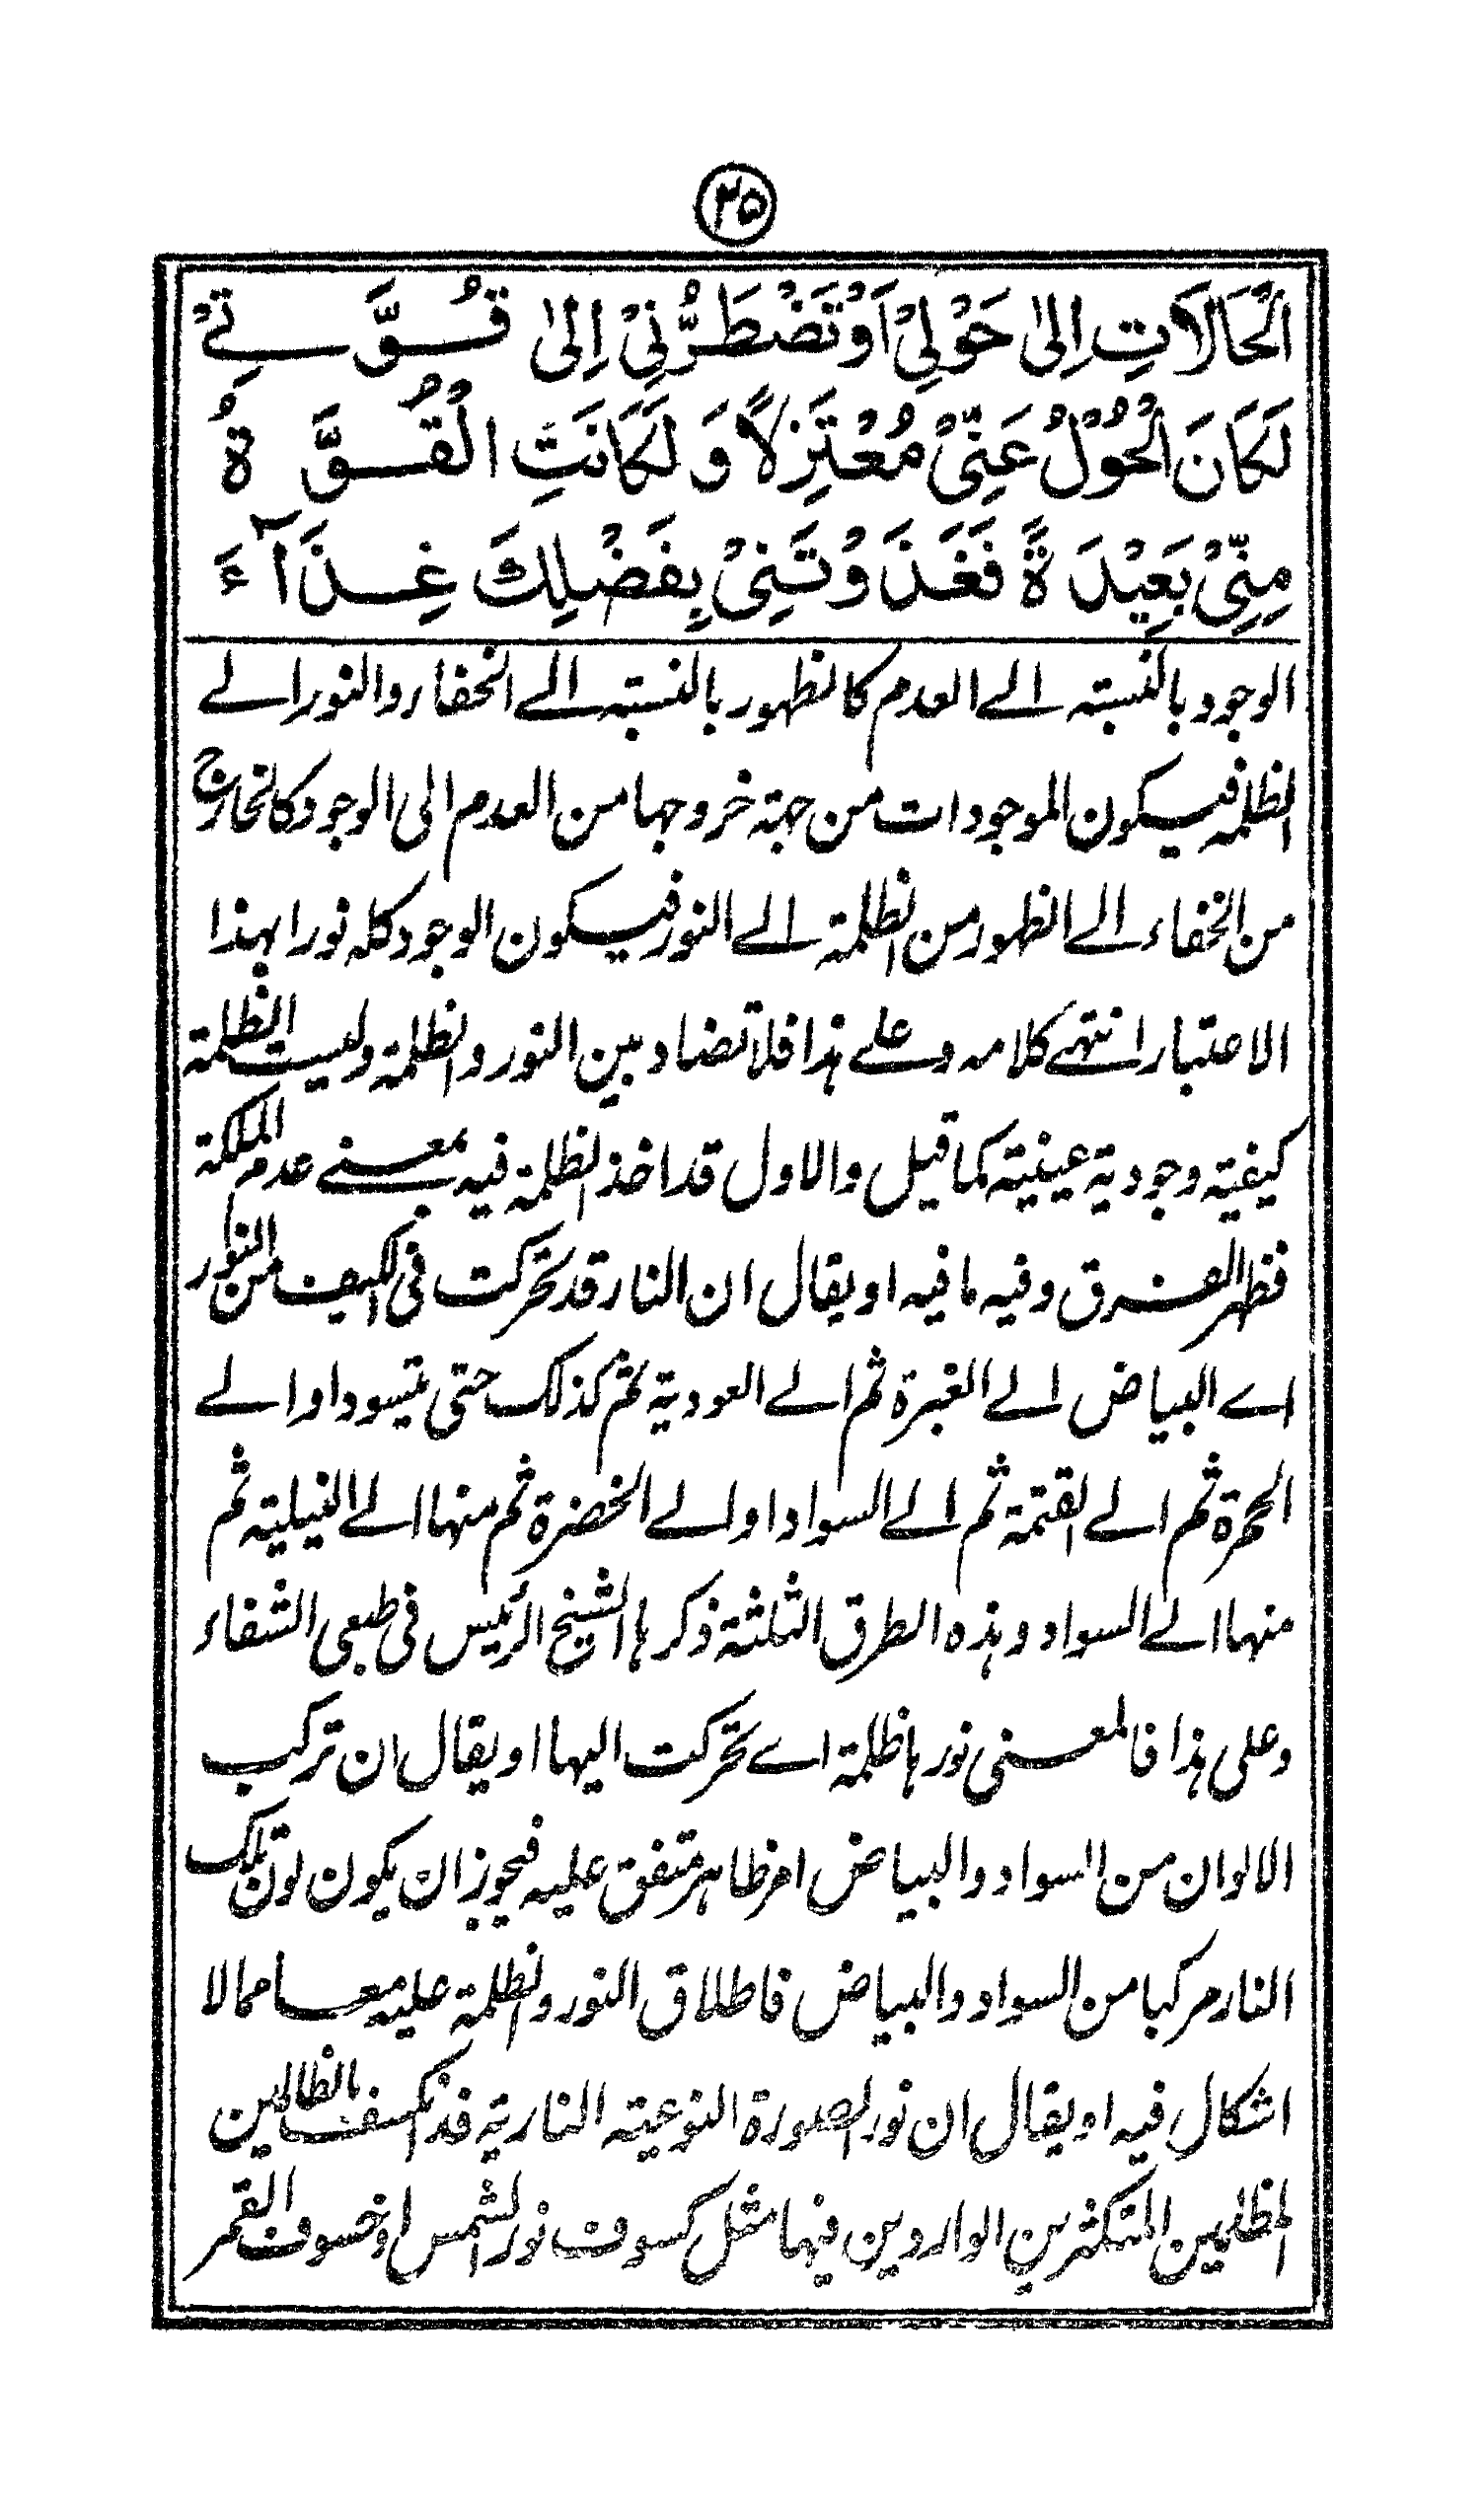 ۲۵
اَلْحَالَاتِ اِلىٰ حَوْلِيْ اَوْ تَضْطَرُّنِيْ اِلىٰ قُــوَّ تِيْ
لَكَانَ الْحُوْلُ عَنِّيْ مُعْتَزِلًا وَ لَكَانَتِ الْقُــوَّ ةُ
مِنِّيْ بَعِيْدَةً فَغَذَ وْ تَنِيْ بِفَضْلِكَ غِــذَآءَ
الوجود بالنسبته الے العدم كالظهور بالنسبته الے الخفاء والنور الے
الظلمه فيكون الموجودات من جهة خروجها من العدم الى الوجود كالخارج
من الخفاء الے الظهور من الظلمة الے النور فيكون الوجود كله نورا بهذا
الاعتبار انتهے كلامه و علے هذا فلا تضاد بين النور و الظلمة وليست الظلمة
كيفية وجودية عينية كما قيل والاول قد اخذ الظلمة فيه بمعنے عدم الملكة
فظهر الفرق وفيه ما فيه او يقال ان النار قد تحركت فى الكيف من النور
اے البياض الے الغبرة ثم الے العودية ثم كذلك حتى يتسود او الے
الحمرة ثم الے القتمة ثم الے السواد او الے الخضرة ثم منها الے النيلية ثم
منها الے السواد و هذه الطرق الثلثة ذكرها الشيخ الرئيس فى طبعى الشفاء
وعلى هذا فالمعنى نورها ظلمة اے تحركت اليها او يقال ان تركب
الالوان من السواد والبياض امر ظاهر متفق عليه فيجوز ان يكون لون تلك
النار مركبا من السواد والبياض فاطلاق النور والظلمة عليه معا مما لا
اشكال فيه او يقال ان نور الصورة النوعية النارية قد انكسف بالظالمين
المظلمين المتكثرين الواردين فيها مثل كسوف نور الشمس او خسوف القمر